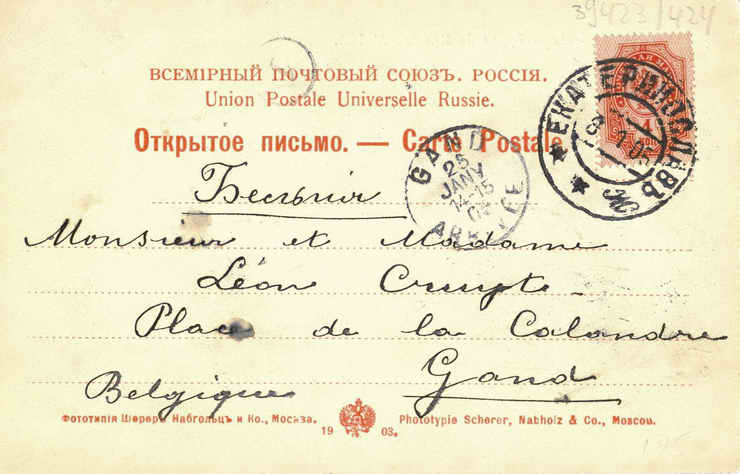 39423/424
ВСЕМІРНЫЙ ПОЧТОВЫЙ СОЮЗЪ. РОССІЯ.
Union Postale Universelle Russie.
Открытое письмо. — Carte Postale.
ЕКАТЕРИНОСЛАВЪ
GAND
25
JANV
14-15
ARRIVEE
Бельгія
Monsieur et Madame
Léon
Place de la Calandre
Gand
Belgique
Фототипія Шереръ Набгольцъ и Ко., Москва.
Phototypie Scherer, Nabholz & Co., Moscou.
1903.